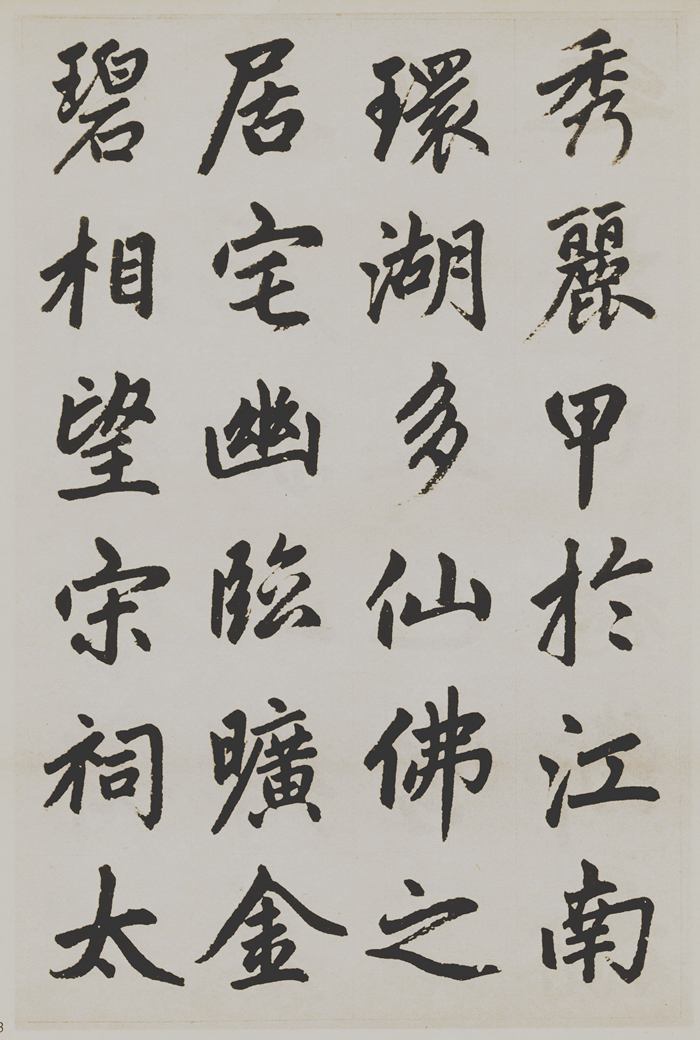 秀麗甲於江南
環湖多仙佛之
居宅幽臨曠金
碧相望宋祠太